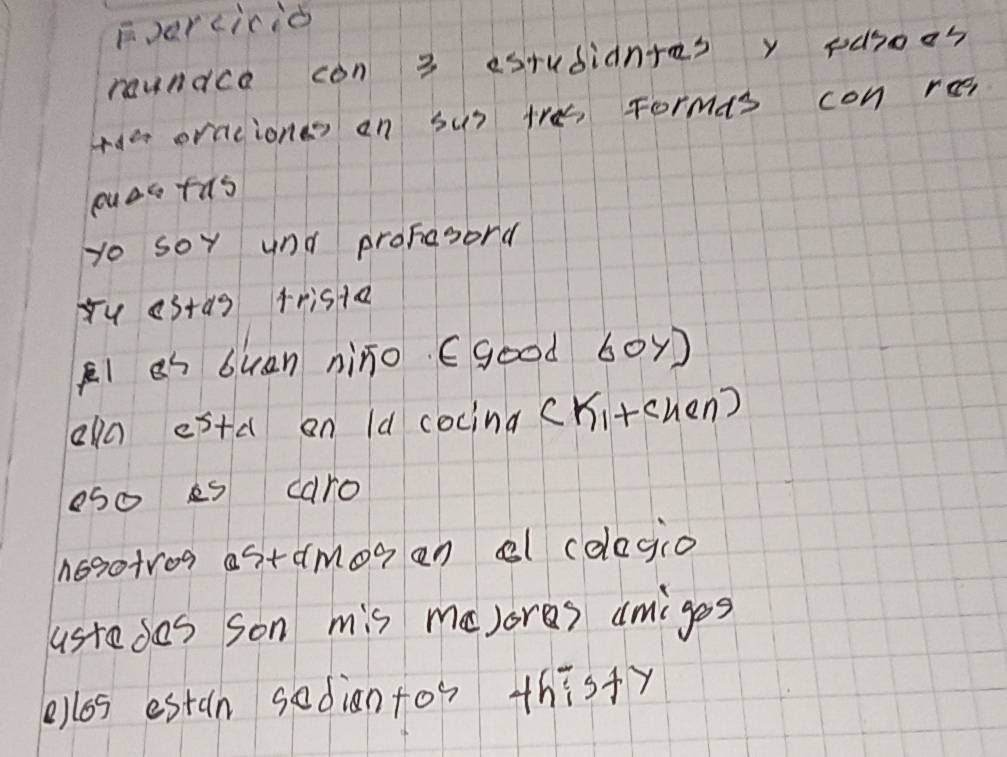 Ejercicio
reunace con 3 estudiantes y pasoes
tas oraciones en sus tres formas con res
puestas
yo soy una profesora
tu estas triste
El es buen niño (good boy)
ella esta en la cocina (Kitchen)
eso es caro
nosotros estamos en el colegio
ustedes son mis mejores amigos
ellos estan sedientos thisty